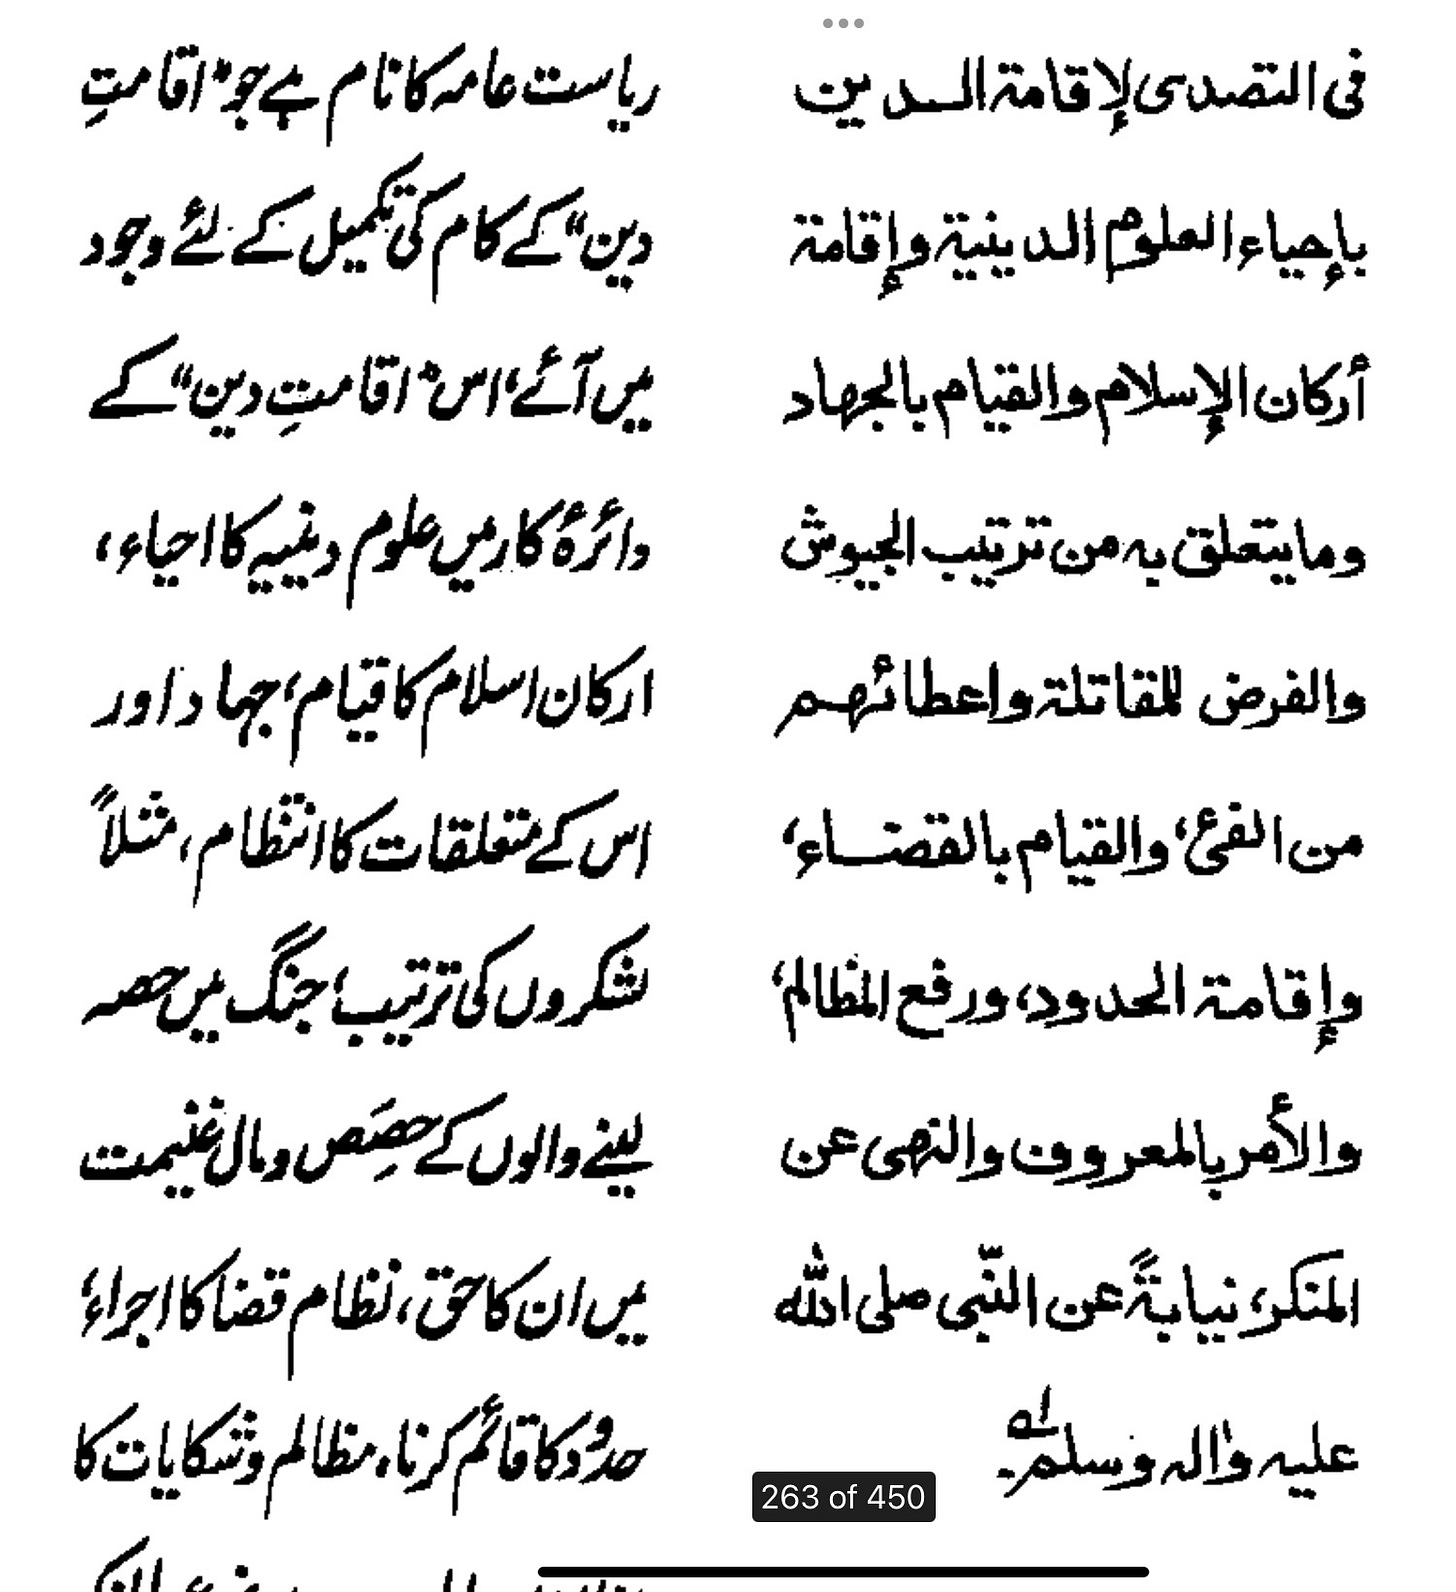 فی التصدی لإقامة الـدین
بإحیاء العلوم الدینیة وإقامة
أرکان الإسلام والقیام بالجهاد
وما یتعلق به من ترتیب الجیوش
والفرض للمقاتلة واعطائهم
من الفئ، والقیام بالقضـاء،
وإقامة الحدود، ورفع المظالم،
والأمر بالمعروف والنهی عن
المنکر، نیابةً عن النّبی صلی الله
علیه واٰله وسلم۔ لہ
ریاست عامہ کا نام ہے جو "اقامتِ
دین" کے کام کی تکمیل کے لئے وجود
میں آئے، اس "اقامتِ دین" کے
دائرۂ کار میں علوم دینیہ کا احیاء،
ارکان اسلام کا قیام، جہاد اور
اس کے متعلقات کا انتظام، مثلاً
لشکروں کی ترتیب، جنگ میں حصہ
لینے والوں کے حِصَص و مال غنیمت
میں ان کا حق، نظام قضا کا اجراء،
حدود کا قائم کرنا، مظالم و شکایات کا
263 of 450